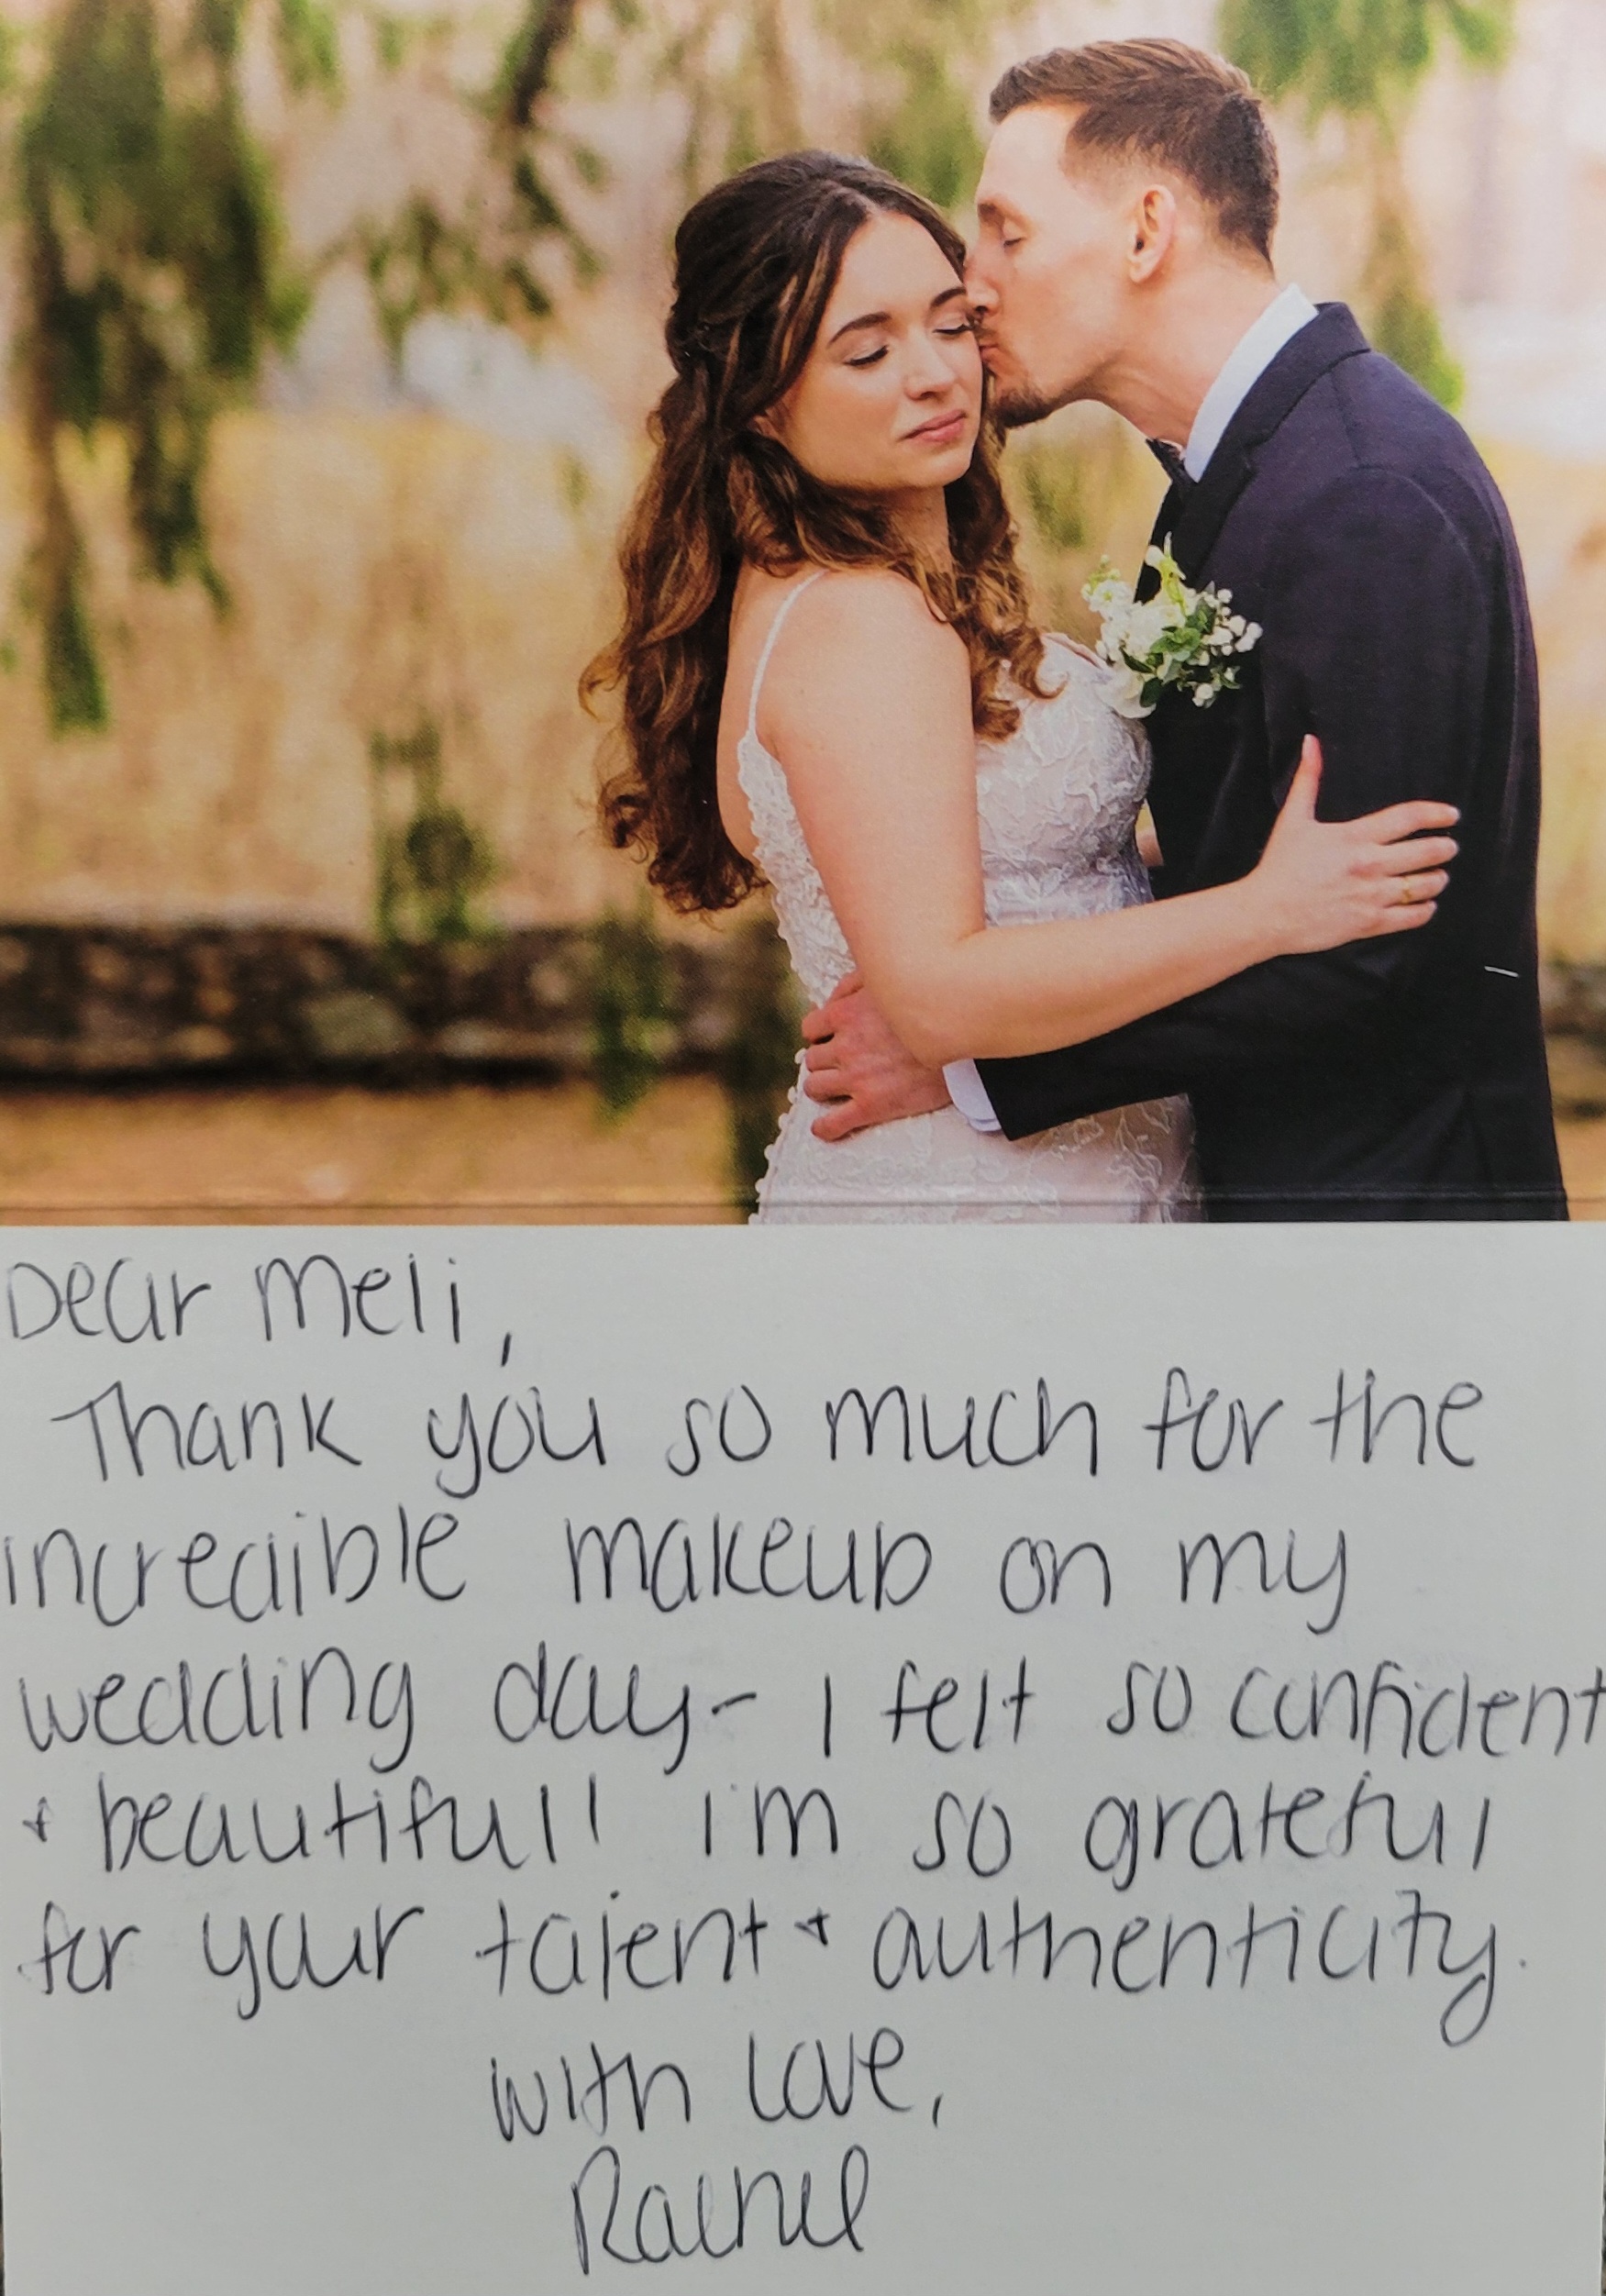 Dear Meli,
Thank you so much for the
incredible makeup on my
wedding day- I felt so confident
+ beautiful! I'm so grateful
for your talent + authenticity.
With Love,
Rachel